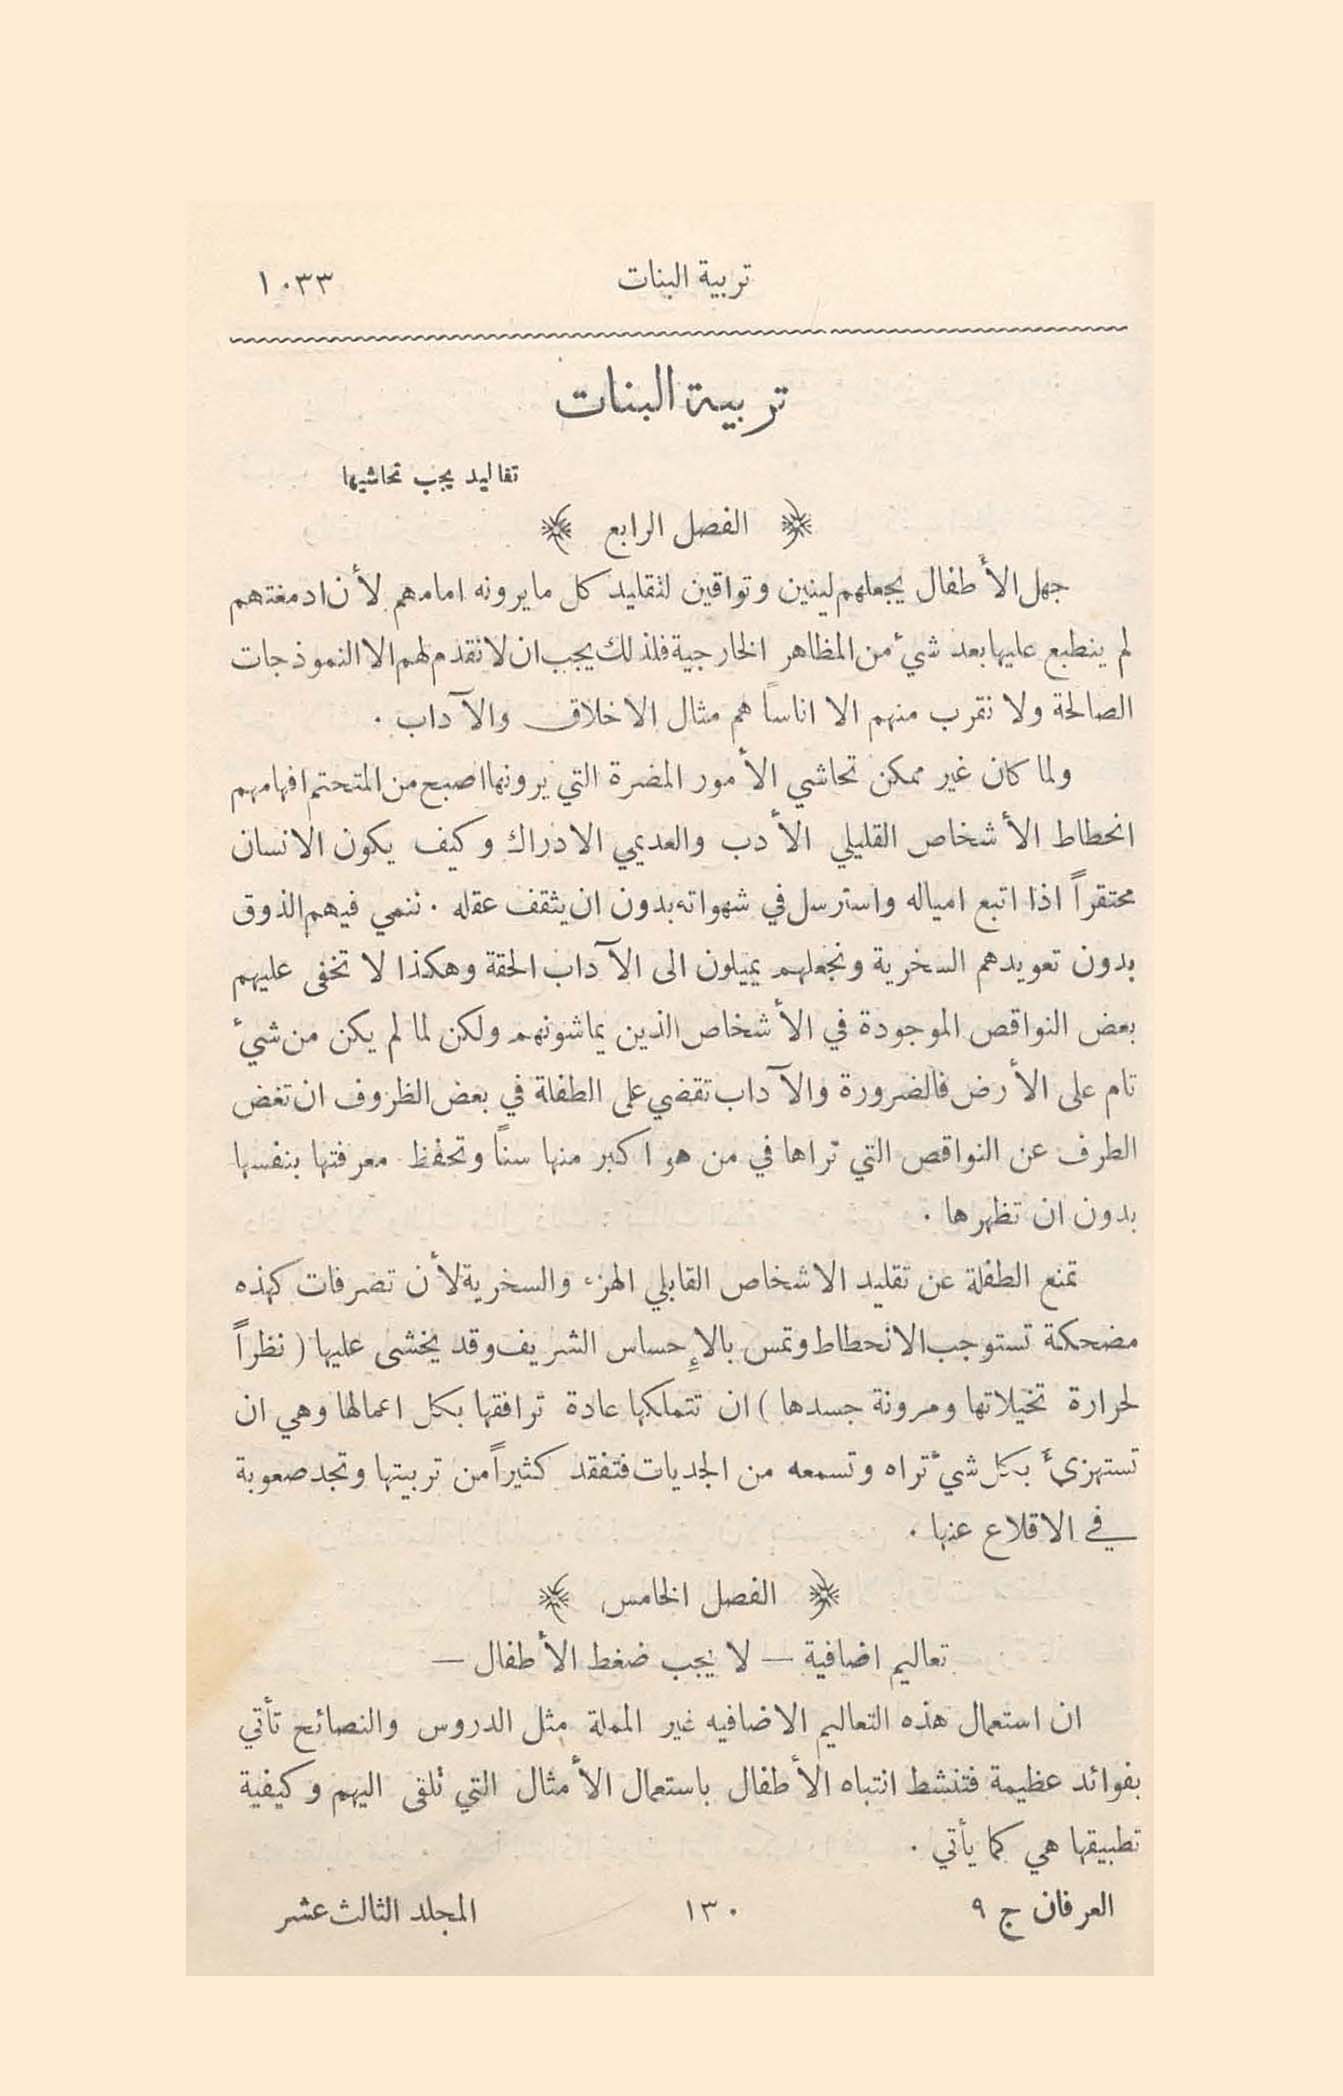 تربية البنات ١٠٣٣
تربية البنات
تقاليد يجب تحاشيها
الفصل الرابع
جهل الأطفال يجعلهم لينين وتواقين لتقليد كل ما يرونه امامهم لأن ادمغتهم
لم ينطبع عليها بعد شيء من المظاهر الخارجية فلذلك يجب ان لا نقدم لهم الا النموذجات
الصالحة ولا نقرب منهم الا اناساً هم مثال الاخلاق والآداب .
ولما كان غير ممكن تحاشي الأمور المضرة التي يرونها اصبح من المتحتم افهامهم
انحطاط الأشخاص القليلي الأدب والعديمي الادراك وكيف يكون الانسان
محتقراً اذا اتبع امياله واسترسل في شهواته بدون ان يثقف عقله . ننمي فيهم الذوق
بدون تعويدهم السخرية ونجعلهم يميلون الى الآداب الحقة وهكذا لا تخفى عليهم
بعض النواقص الموجودة في الأشخاص الذين يماشونهم ولكن لما لم يكن من شيء
تام على الأرض فالضرورة والآداب تقضي على الطفلة في بعض الظروف ان تغض
الطرف عن النواقص التي تراها في من هو اكبر منها سناً وتحفظ معرفتها بنفسها
بدون ان تظهرها .
تمنع الطفلة عن تقليد الاشخاص القابلي الهزء والسخرية لأن تصرفات كهذه
مضحكة تستوجب الانحطاط وتمس بالإحساس الشريف وقد يخشى عليها ( نظراً
لحرارة تخيلاتها ومرونة جسدها ) ان تتملكها عادة ترافقها بكل اعمالها وهي ان
تستهزئ بكل شيء تراه وتسمعه من الجديات فتفقد كثيراً من تربيتها وتجد صعوبة
في الاقلاع عنها .
الفصل الخامس
تعاليم اضافية — لا يجب ضغط الأطفال —
ان استعمال هذه التعاليم الاضافيه غير المملة مثل الدروس والنصائح تأتي
بفوائد عظيمة فتنشط انتباه الأطفال باستعمال الأمثال التي تلقى اليهم وكيفية
تطبيقها هي كما يأتي .
العرفان ج ٩ ١٣٠ المجلد الثالث عشر